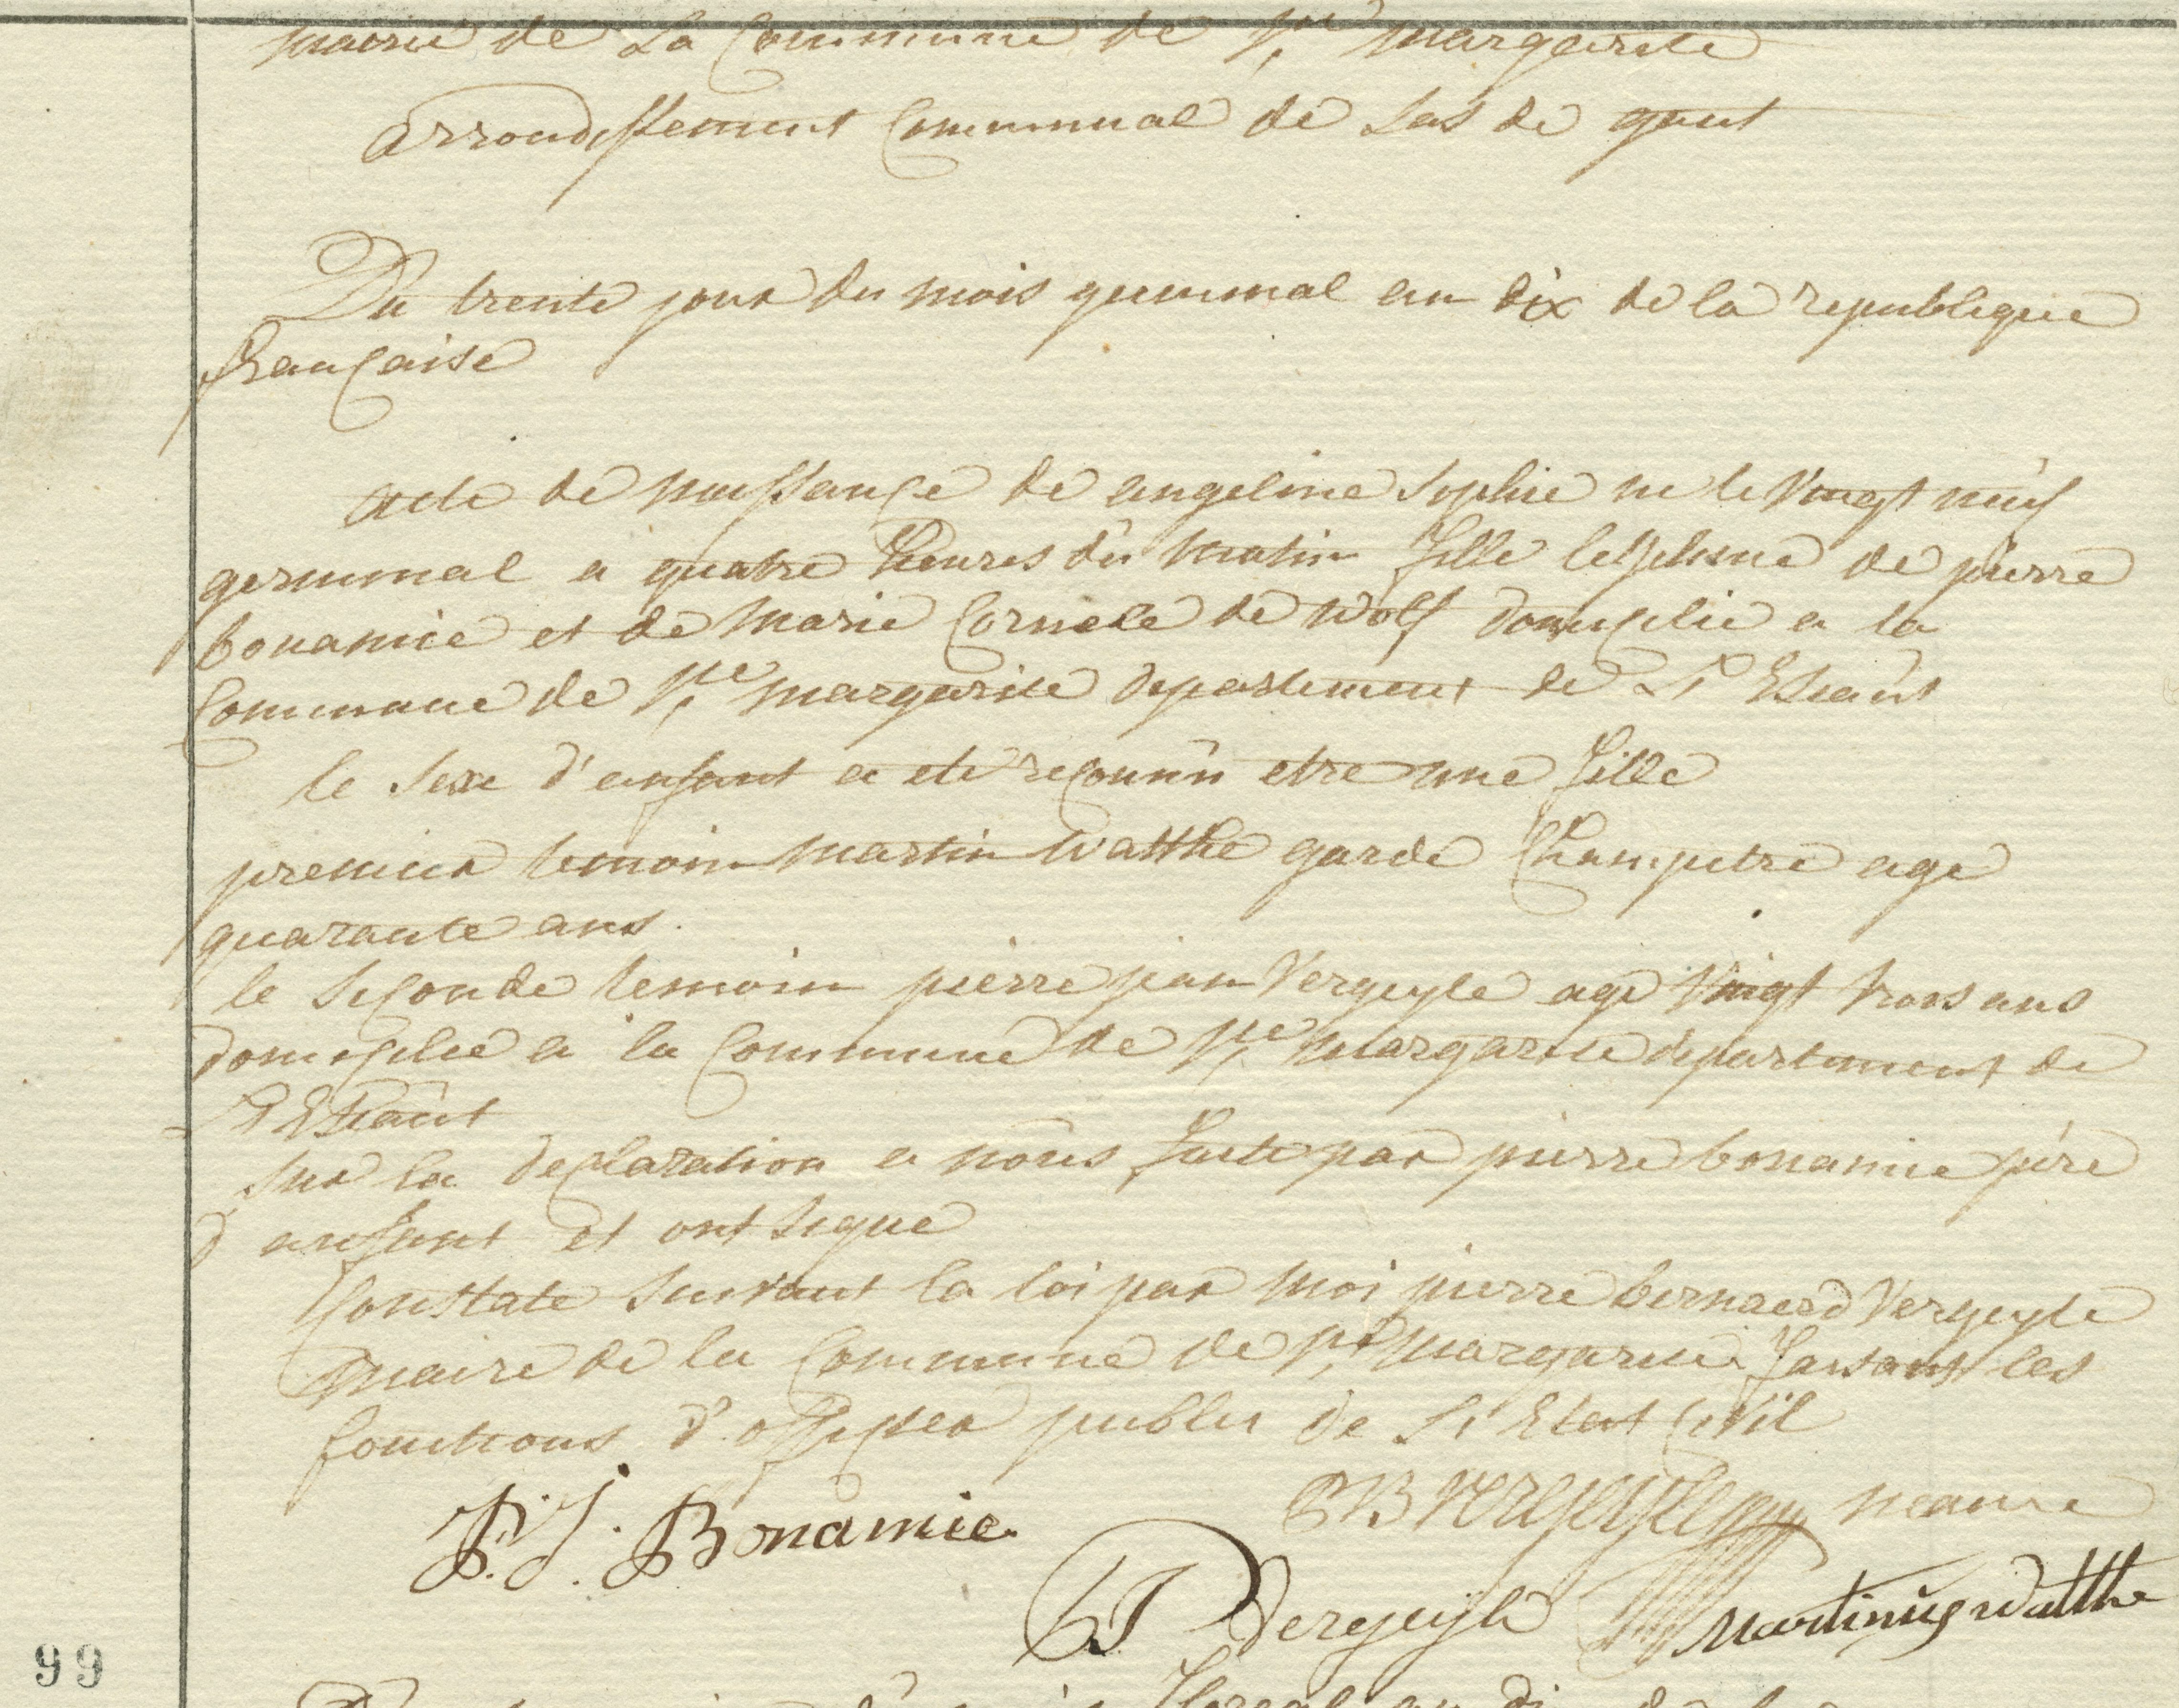 mairie de La Commune de Ste margarite
arrondissement Communal de Sas de gant
Du trente jour du mois germinal an dix de la republique
française
acte de naissançe de angeline Sophie ne le Vingt neuf
germinal a quatre heures du matin fille de pierre
bonamie et de marie Cornele de Wolf domicilie a la
Commune de Ste margarite departement de L'Escaut
le sexe d'enfant a ete reconnu etre une fille
premier temoin martin Watthe garde Champetre age
quarante ans.
le seconde temoin pierre jean Vergeyle age Vingt trois ans
domicilie a la Commune de Ste margarite departement de
L'Escaut
sur la declaration a nous faite par pierre bonamie père
d'enfant et ont signe
Constate suivant la loi par moi pierre bernaerd Vergeyle
maire de la Commune de Ste margarite faisant les
fonctions d'officier public de L'Etat Civil
P. J. Bonamie
PB Vergeyle maire
PJ Vergeyle Martinus Watthe
99